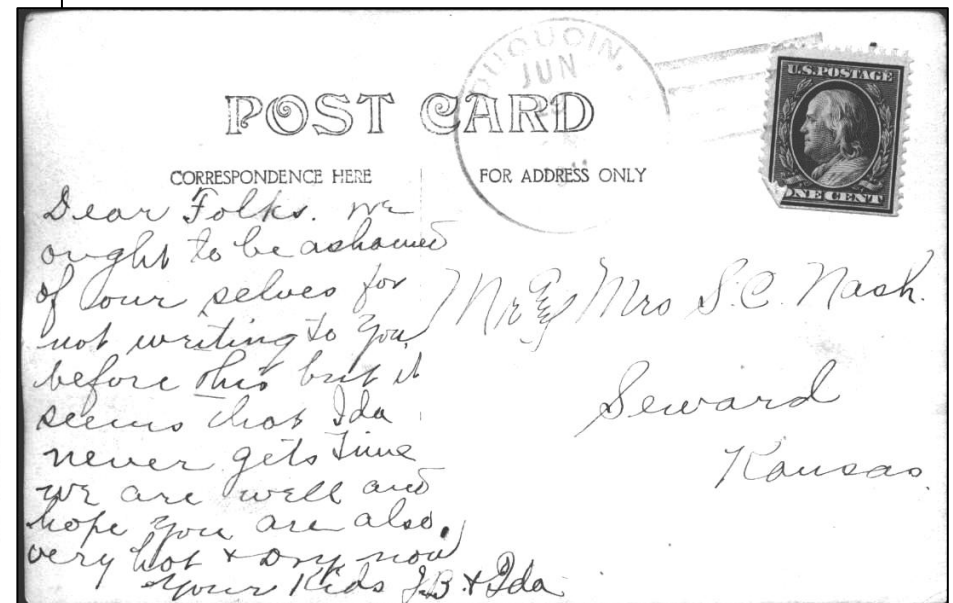 DUQUOIN,
JUN
U.S. POSTAGE
ONE CENT
POST CARD
CORRESPONDENCE HERE
FOR ADDRESS ONLY
Dear Folks. we
ought to be ashamed
of our selves for
not writing to you
before this but it
seems that Ida
never gets time
we are well and
hope you are also.
very hot + dry now
Your Kids J.B. + Ida
Mr & Mrs S.C. Nash.
Seward
Kansas.